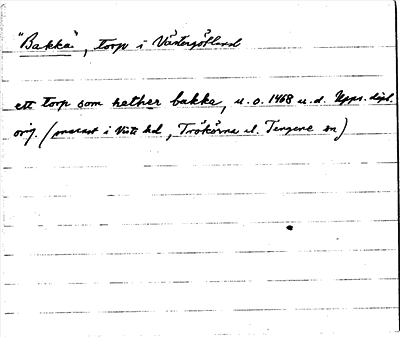 "Bakka", torp i Västergötland
ett torp som hether bakka, u.o. 1468 u.d. Upps. dipl.
orig. (onsvart i Viste hd, Tråkärna el. Tengene sn)